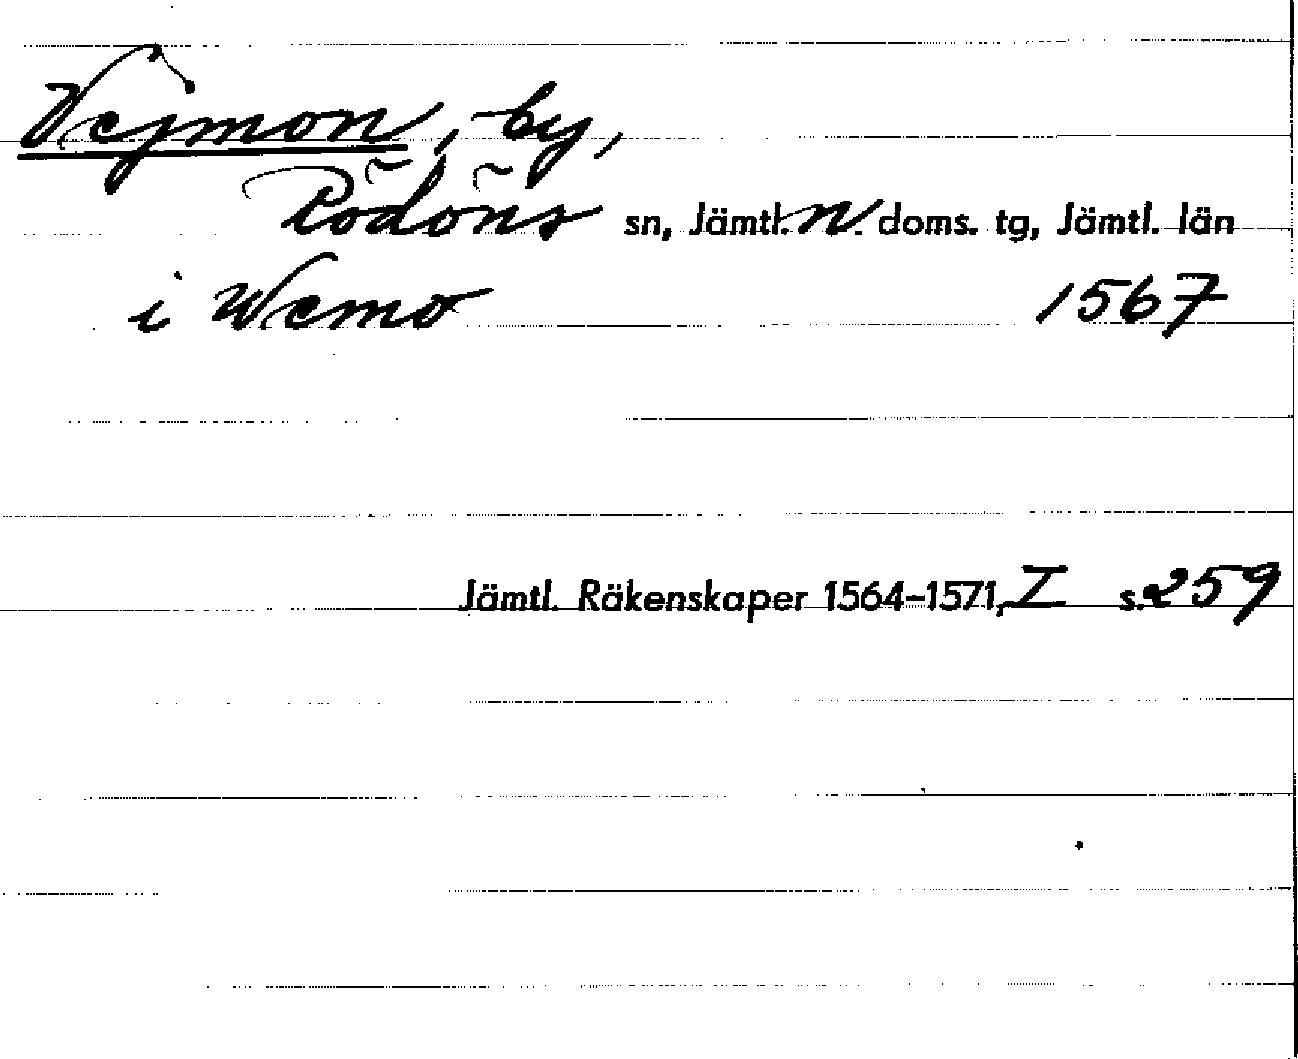 Vejmon, by,
Rödöns sn, Jämtl. N. doms. tg, Jämtl. län
i Wemo 1567
Jämtl. Räkenskaper 1564-1571, I s. 259